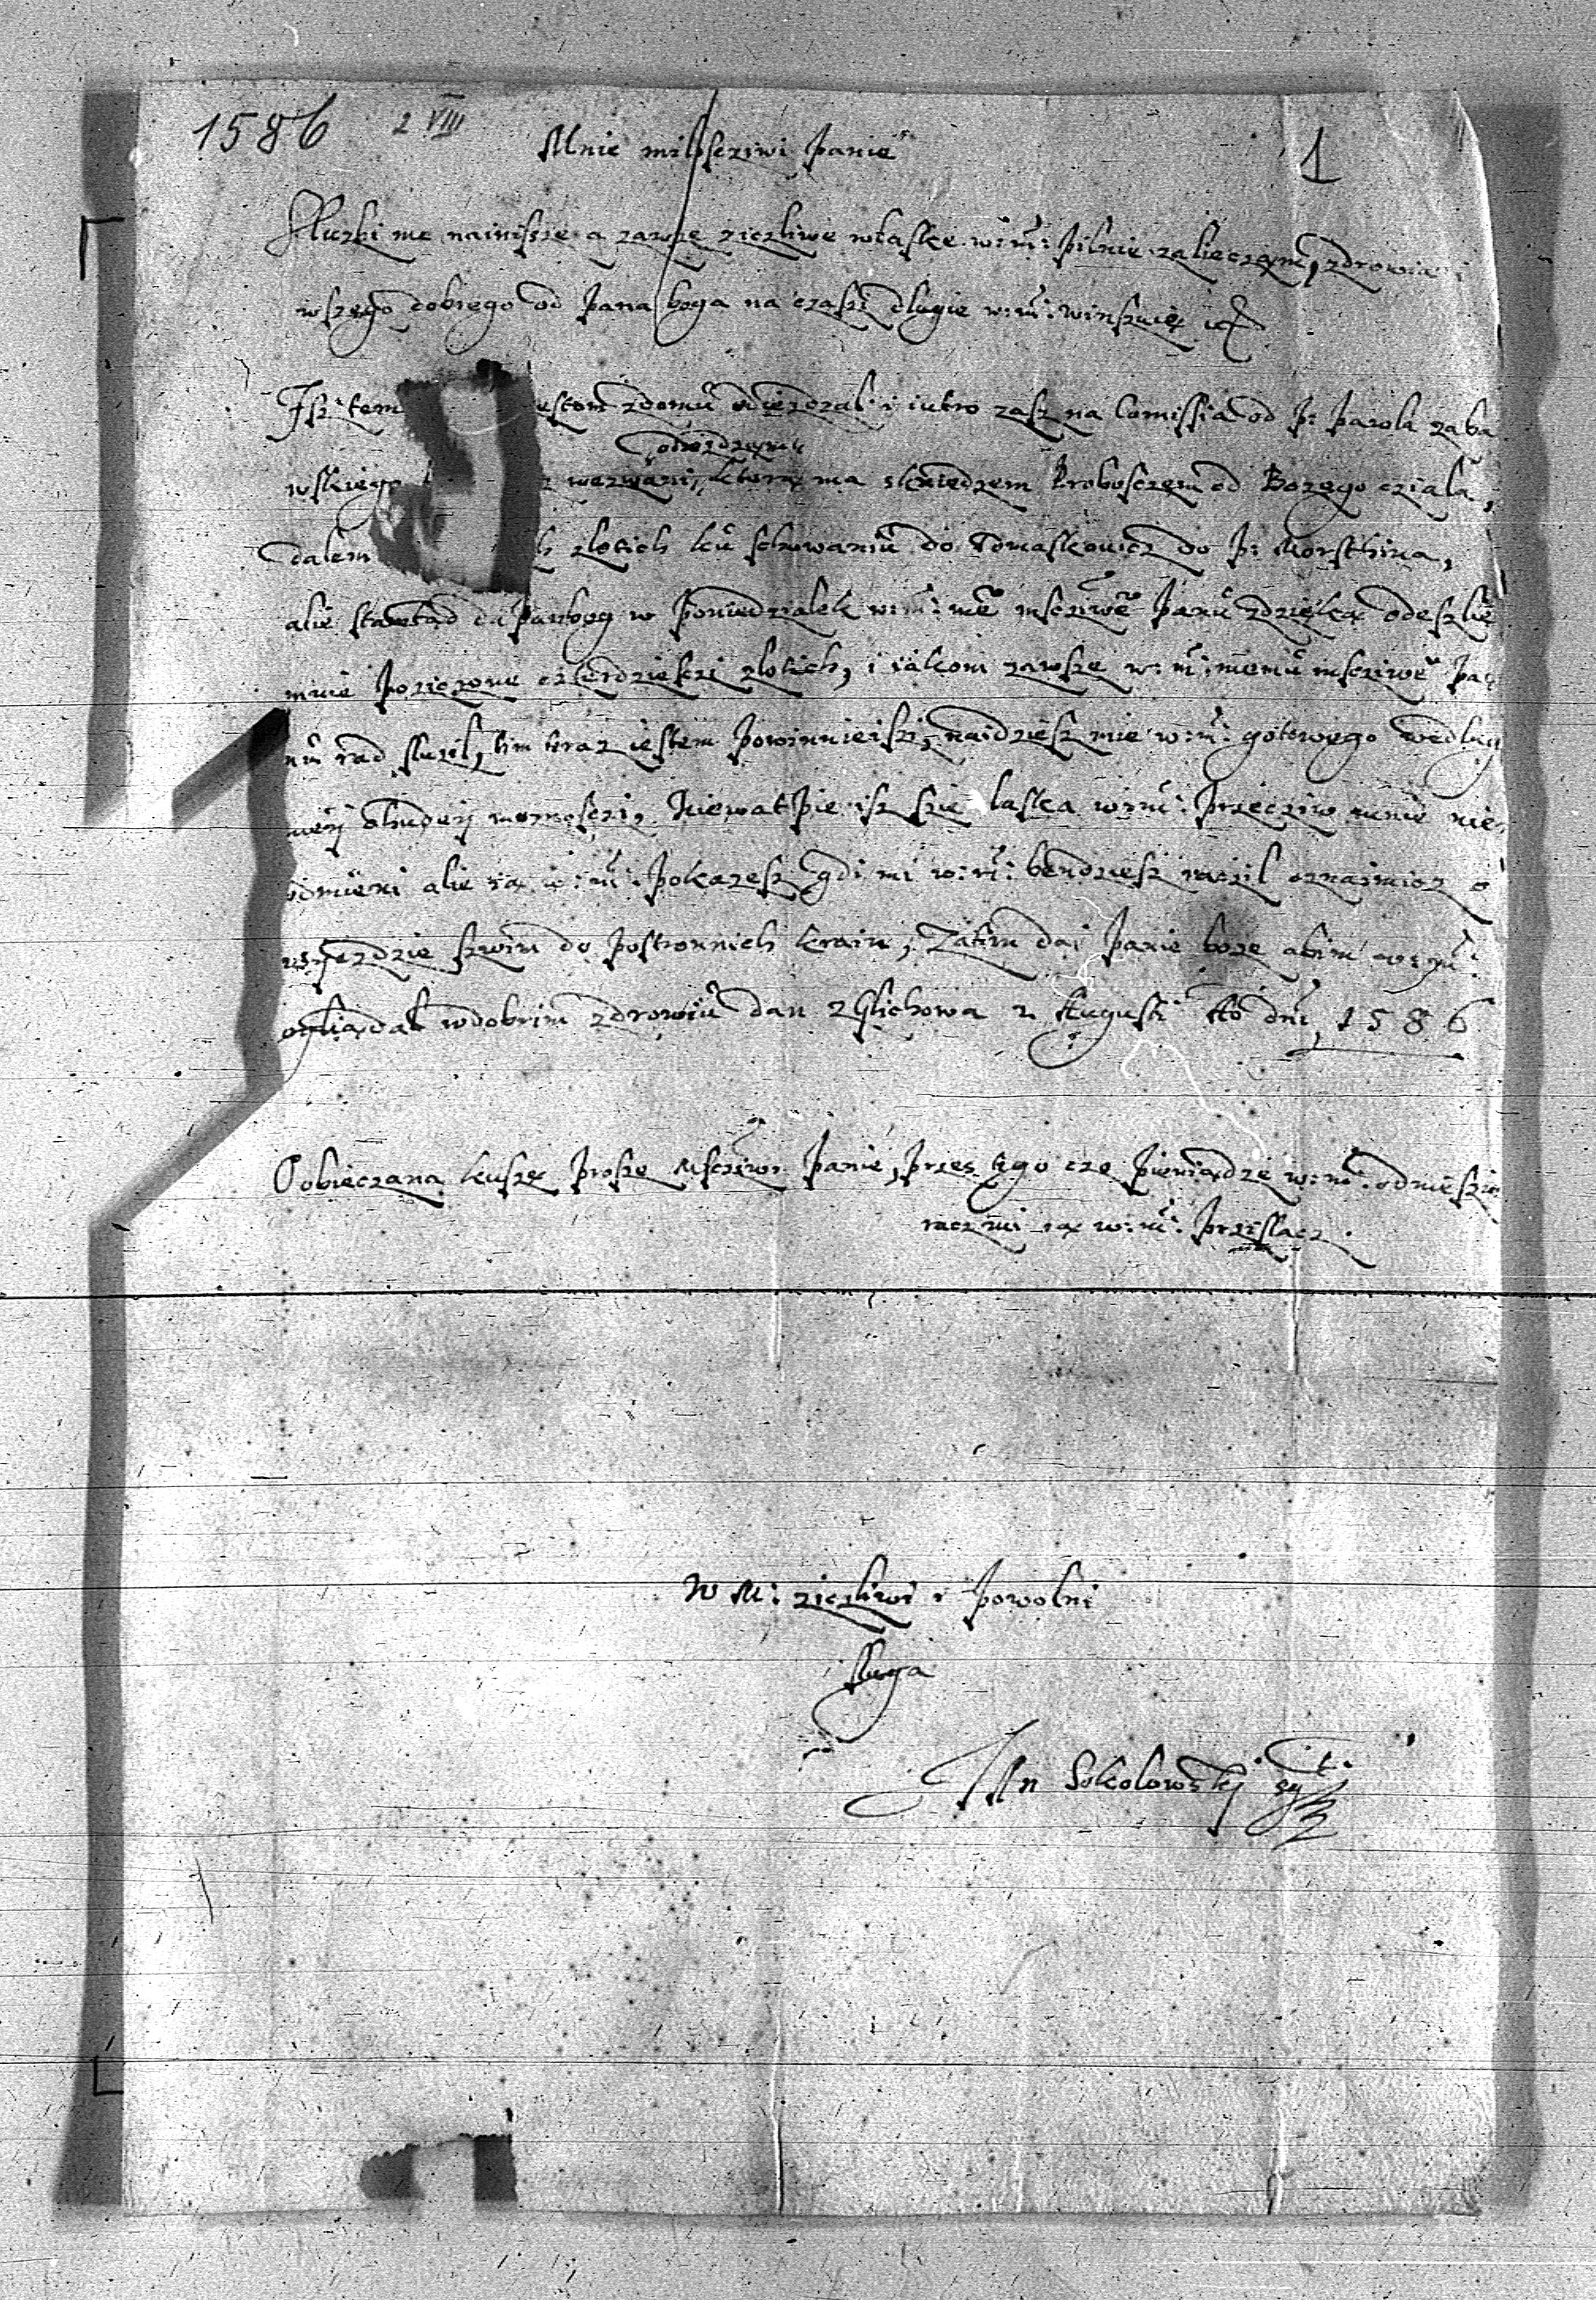 1586 2 VIII
1
Mnie milosciwi Panie
Sluzbi me nainissze a zawsze ziczliwe w laske w: m: pilnie zalieczam, zdrowia i
wszego dobrego od pana boga na czassi dlugie w: m: winszuię
Isz tem estom z domu odiezdzal i iutro zasz na Comissia od P: Pawla
wskiego odiezdzam wezwani, ktorą ma skniedzem Proboszczem od Bozego cziala,
dalem zlotich ku schowaniu do Tomaskowicz do P: Morsthina,
alie stamtąd da Panbog w Poniedzialek w: m: me mscziwe Panu zdzięką odeszlię
mnie poziczone czterdziesczi zlotich, i iakom zawsze w: m: memu mscziwe Pa
nu rad sluzil, tim teraz iestem powinnieiszi, naidziesz mie w: m: gotowego wedlug
mei chudei moznosczi, Niewatpie isz szie laska w: m: przecziw mnie nie
odmieni alie ią w: m: pokazesz gdi mi w: m: bendziesz raczil oznaimicz o
 szwim do postronnich krain, Zatim dai Panie boze abim w: m:
ogliądal w dobrim zdrowiu dan z Glichowa 2 Augusti Ao dni, 1586
O obieczaną kuszę proszę Msczivi Panie, przes tego czo pieniądze w: m: odniesie
racz mi ią w: m: przislacz.
W M: ziczliwi i powolni
sluga
Jan Sokolowskj